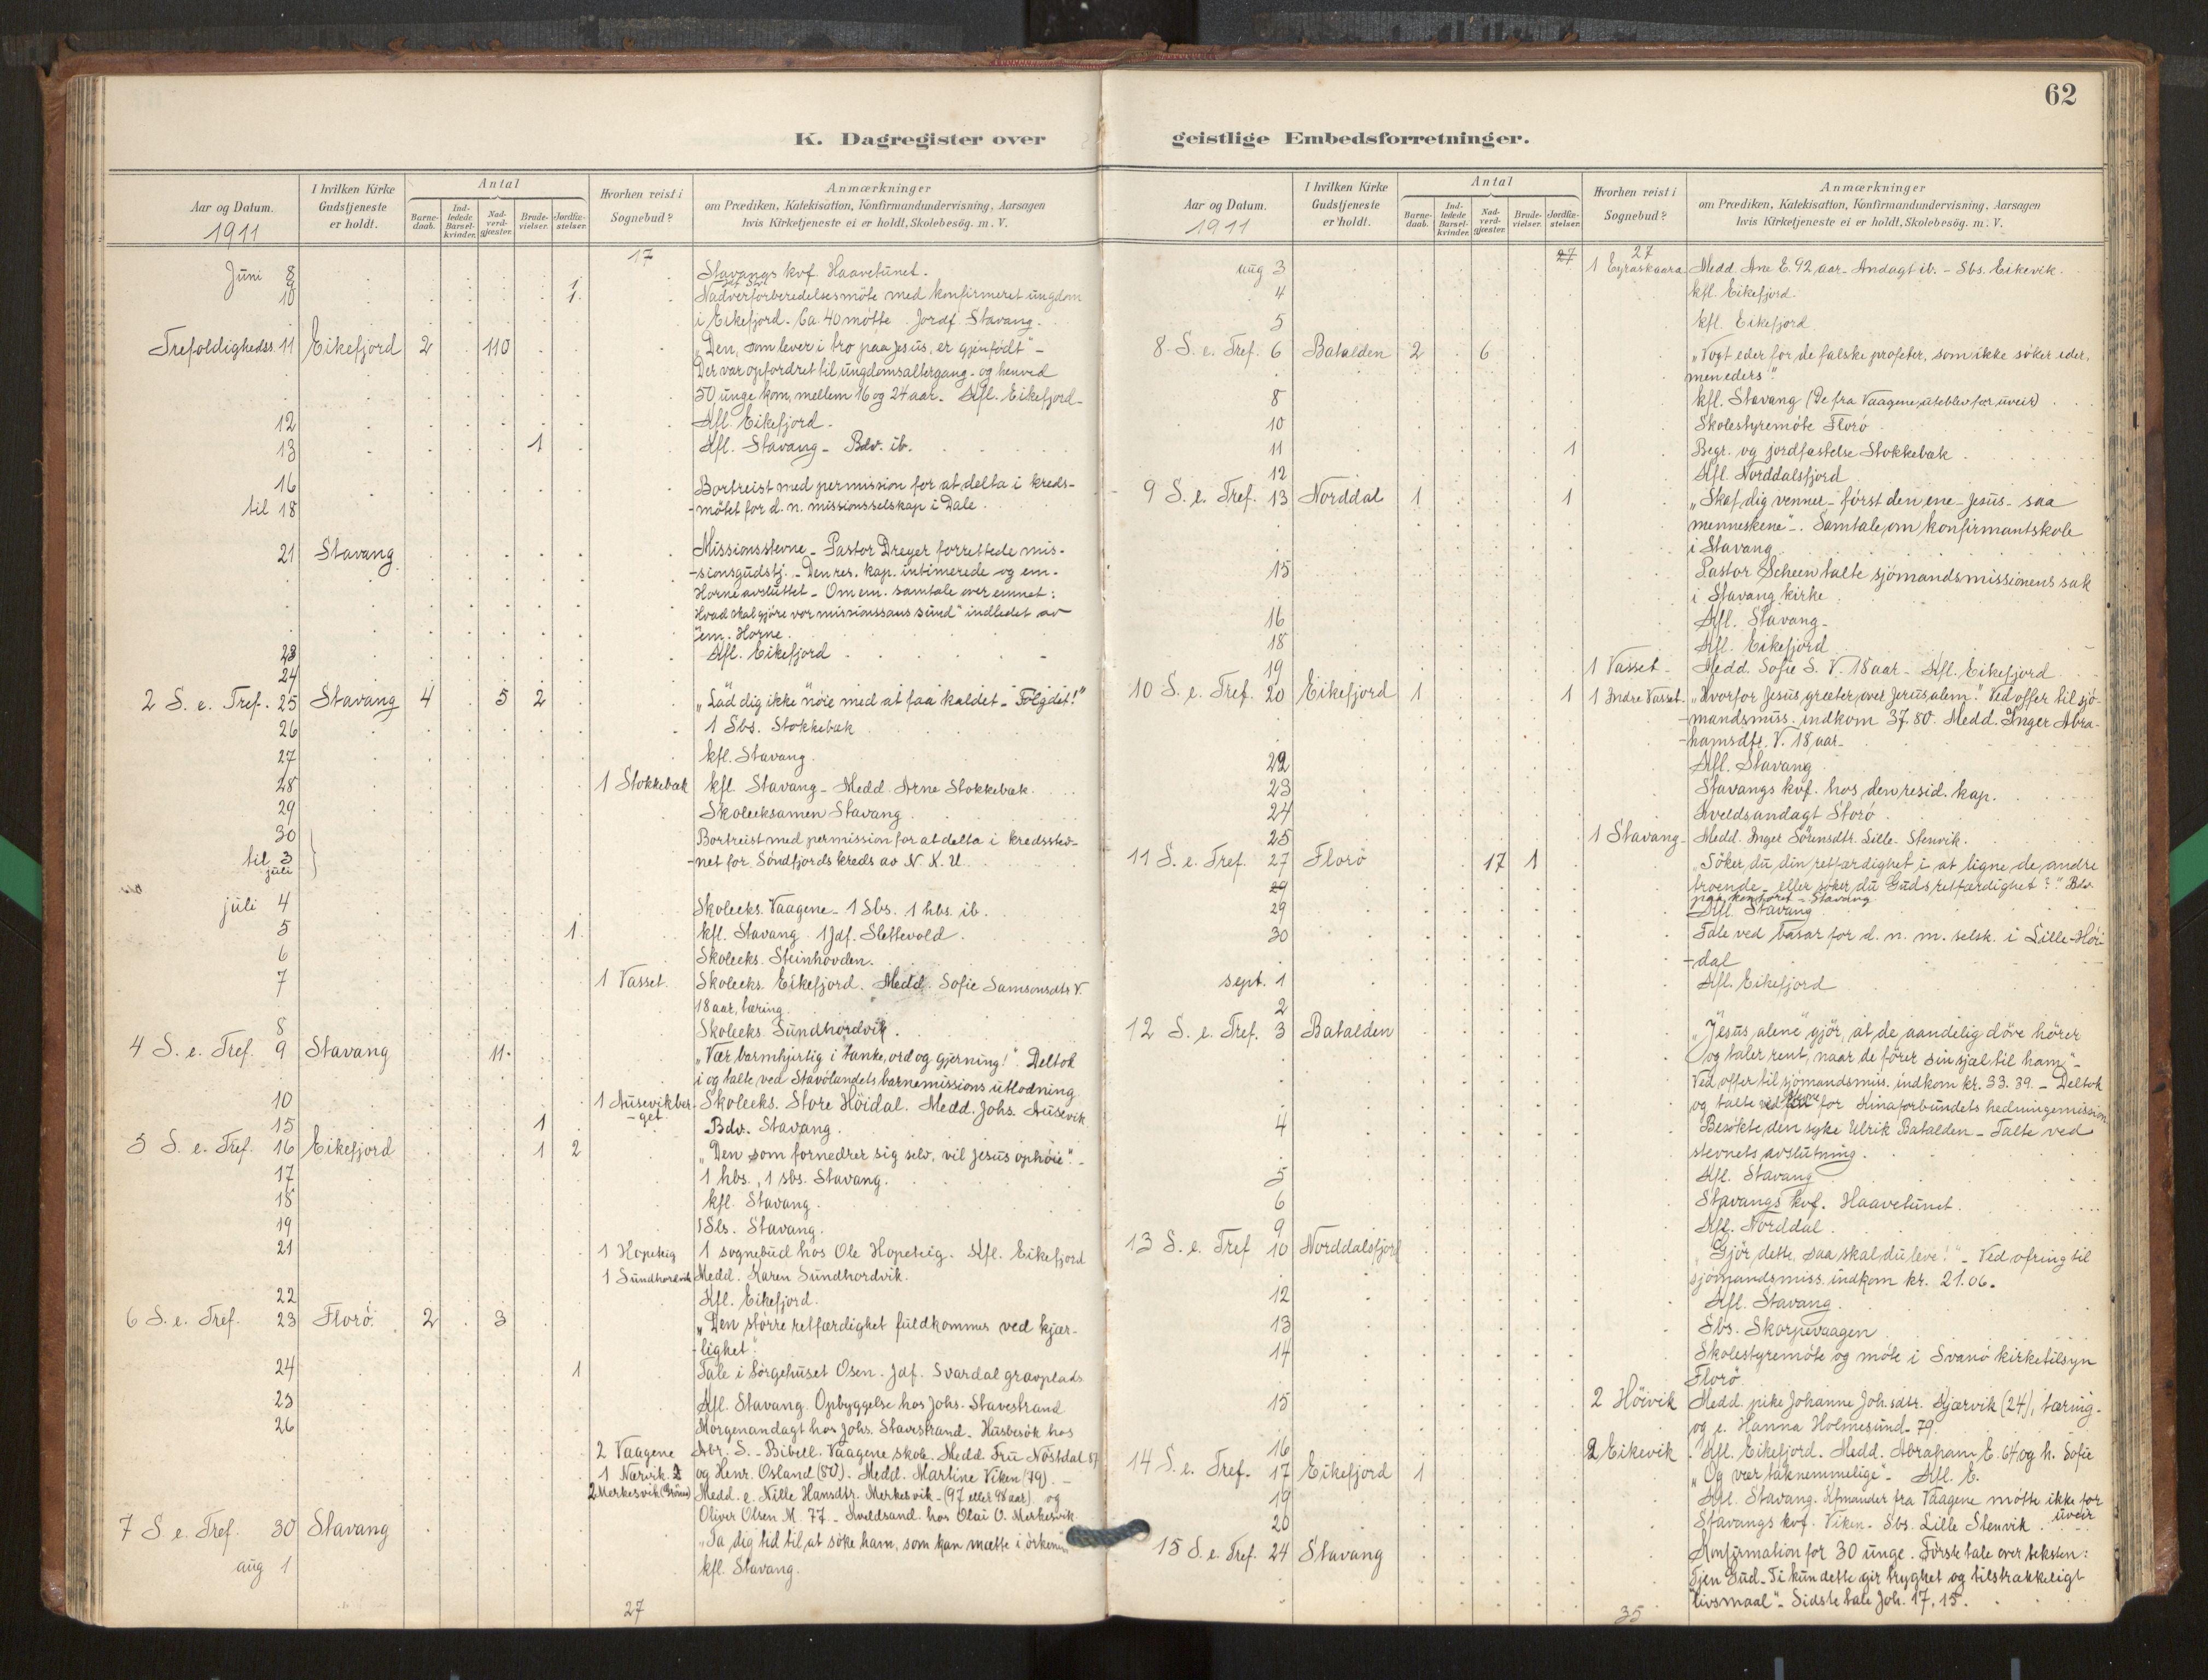 62
K. Dagregister over geistlige Embedsforretninger.
Aar og Datum. I hvilken Kirke Gudstjeneste er holdt. Antal Barnedaab. Indledede Barselkvinder. Nadverdgjæster. Brudevielser. Jordfæstelser. Hvorhen reist i Sognebud? Anmærkninger om Prædiken, Katekisation, Konfirmandundervisning, Aarsagen hvis Kirketjeneste ei er holdt, Skolebesög. m. V.
1911
17
Juni 8 Stavangs kvf. Haavetunet.
9 1
10 1 Nadverforberedelsesmöte med konfirmeret ungdom
i Eikefjord. Ca 40 mötte. Jordf. Stavang.
Trefoldighedss. 11 Eikefjord 2 110 „Den, som lever i tro paa Jesus, er gjenfödt" -
Der var opfordret til ungdomsaltergang - og henved
50 unge kom, mellem 16 og 24 aar. Kfl. Eikefjord -
12 Kfl. Eikefjord.
13 1 Kfl. Stavang - Bdv. ib.
16 Bortreist med permission for at delta i kreds-
til 18 -mötet for d. n. missionsselskap i Dale.
21 Stavang Missionsstevne - Pastor Dreyer forrettede mis-
-sionsgudstj. - Den res. kap. intimerede og em.
Horne avsluttet - Om em. samtale over emnet:
Hvad skal gjöre vor missionssans sund" indledet av
em. Horne.
23 Kfl. Eikefjord
24
2 S. e. Tref. 25 Stavang 4 5 2 „Lad dig ikke nöie med at faa kaldet - Fölg det!"
26 1 Sbs. Stokkebak
27 kfl. Stavang.
28 1 Stokkebak kfl. Stavang - Medd. Arne Stokkebak.
29 Skoleeksamen Stavang.
30 Bortreist med permission for at delta i kredsstev-
til 3 juli -net for Söndfjords kreds av N. K. U.
juli 4 Skoleeks. Vaagene - 1 Sbs. 1 hbs. ib.
5 1 kfl. Stavang 1 Jdf. Slettevold.
6 Skoleeks. Steinhovden.
7 1 Vasset. Skoleeks. Eikefjord. Medd. Sofie Samsonsdtr V.
18 aar, tæring.
8 Skoleeks. Sundhordvik.
4 S. e. Tref. 9 Stavang 11 „Vær barmhjertig i tanke, ord og gjerning!" Deltok
i og talte ved Stavölandets barnemissions utlodning
10 1 Ausevikber- Skoleeks. Store Höidal. Medd. Johs. Ausevik
-get
15 1 Bdv. Stavang.
5 S. e. Tref. 16 Eikefjord 1 2 „Den som fornedrer sig selv, vil Jesus ophöie". -
17 1 hbs., 1 sbs. Stavang.
18 kfl. Stavang.
19 1 Sbs. Stavang.
21 1 Hopeteig 1 sognebud hos Ole Hopeteig. Kfl. Eikefjord
1 Sundhordvik Medd. Karen Sundhordvik.
22 Kfl. Eikefjord.
6 S. e. Tref. 23 Florö. 2 3 „Den större retfærdighet fuldkommes ved kjær-
-lighet".
24 1 Tale i Sörgehuset Osen. Jdf. Svardal gravplads
25 Kfl. Stavang. Opbyggelse hos Johs. Stavestrand
26 Morgenandagt hos Johs. Stavestrand - Husbesök hos
2 Vaagene Abr. S. - Bibell. Vaagene skole. Medd. Fru Nöstdal 87
1 Nærvik og Henr. Osland (80). Medd. Martine Viken (79). -
2 Merkesvik Medd. e. Nille Hansdtr. Merkesvik - (97 eller 98 aar) og
Oliver Olsen M. 77 - Kveldsand. hos Olai O. Merkesvik
7 S. e. Tref. 30 Stavang „Ta dig tid til, at söke ham, som kan mætte i örkenen"
aug 1 kfl. Stavang.
27
Aar og Datum. I hvilken Kirke Gudstjeneste er holdt. Antal Barnedaab. Indledede Barselkvinder. Nadverdgjæster. Brudevielser. Jordfæstelser. Hvorhen reist i Sognebud? Anmærkninger om Prædiken, Katekisation, Konfirmandundervisning, Aarsagen hvis Kirketjeneste ei er holdt, Skolebesög. m. V.
1911
27 27
aug 3 1 Eyraskaara Medd. Ane E. 92 aar - Andagt ib. - Sbs. Eikevik.
4 kfl. Eikefjord.
5 kfl. Eikefjord
8 S. e. Tref. 6 Batalden 2 6 „Vogt eder for de falske profeter, som ikke söker eder,
men eders".
8 kfl. Stavang (De fra Vaagene uteblev for uveir)
10 Skolestyremöte Florö
11 1 Begr. og jordfæstelse Stokkebak
12 Kfl. Norddalsfjord
9 S. e. Tref. 13 Norddal 1 1 „Skaf dig venner - först den ene - Jesus - saa
menneskene" -. Samtale om konfirmantskole
i Stavang
15 Pastor Scheen talte sjömandsmissionens sak
i Stavang kirke
16 Kfl. Stavang -
18 Kfl. Eikefjord
19 1 Vasset - Medd. Sofie S. V. 18 aar - Kfl. Eikefjord
10 S. e. Tref. 20 Eikefjord 1 1 1 Indre Vasset. „Hvorfor Jesus græter over Jerusalem". Ved offer til sjö-
-mandsmiss. indkom 37.80. Medd. Inger Abra-
-hamsdtr. V. 18 aar -
22 Kfl. Stavang
23 Stavangs kvf. hos den resid. kap.
24 Kveldsandagt Storö
25 1 Stavang - Medd. Inger Sörensdtr. Lille-Stenvik.
11 S. e. Tref 27 Florö 17 1 „Söker du din retfærdighet i at ligne de andre
29 troende - eller söker du Guds retfærdighet?" Bdv.
paa kontoret - Stavang
29 Kfl. Stavang
30 Tale ved basar for d. n. m. selsk. i Lille-Höi-
-dal
sept. 1 Kfl. Eikefjord
2
12 S. e. Tref. 3 Batalden „Jesus alene" gjör, at de aandelig döve hörer
og taler rent, naar de förer sin sjæl til ham" -
Ved offer til sjömandsmiss. indkom kr. 33.39. - Deltok
og talte ved stevne for Kinaforbundets hedningemission
4 Besökte den syke Ulrik Batalden - Talte ved
stevnets avslutning.
5 Kfl. Stavang
6 Stavangs kvf. Haavetunet.
9 Kfl. Norddal.
13 S. e. Tref 10 Norddalsfjord „Gjör dette, saa skal du leve!" - Ved ofring til
sjömandsmiss. indkom kr. 21.06.
12 Kfl. Stavang.
13 Sbs. Skorpevaagen
14 Skolestyremöte og möte i Svanö kirketilsyn
Florö.
15 2 Höivik Medd. pike Johanne Joh.sdtr. Kjærvik (24), tæring -
og e. Hanna Holmesund - 79.
16 2 Eikevik Kfl. Eikefjord. Medd. Abraham E. 64 og h. Sofie
14 S. e. Tref. 17 Eikefjord 1 „Og vær taknemmelige" - Kfl. E.
19 Kfl. Stavang. Kfmander fra Vaagene mötte ikke for
uveir
20 Stavangs kvf. Viken. Sbs. Lille Stenvik.
15 S. e. Tref. 24 Stavang Konfirmation for 30 unge. Förste tale over teksten:
Tjen Gud - Ti kun dette gir tryghet og tilstrækkeligt
livsmaal" - Sidste tale Joh. 17, 15.
35